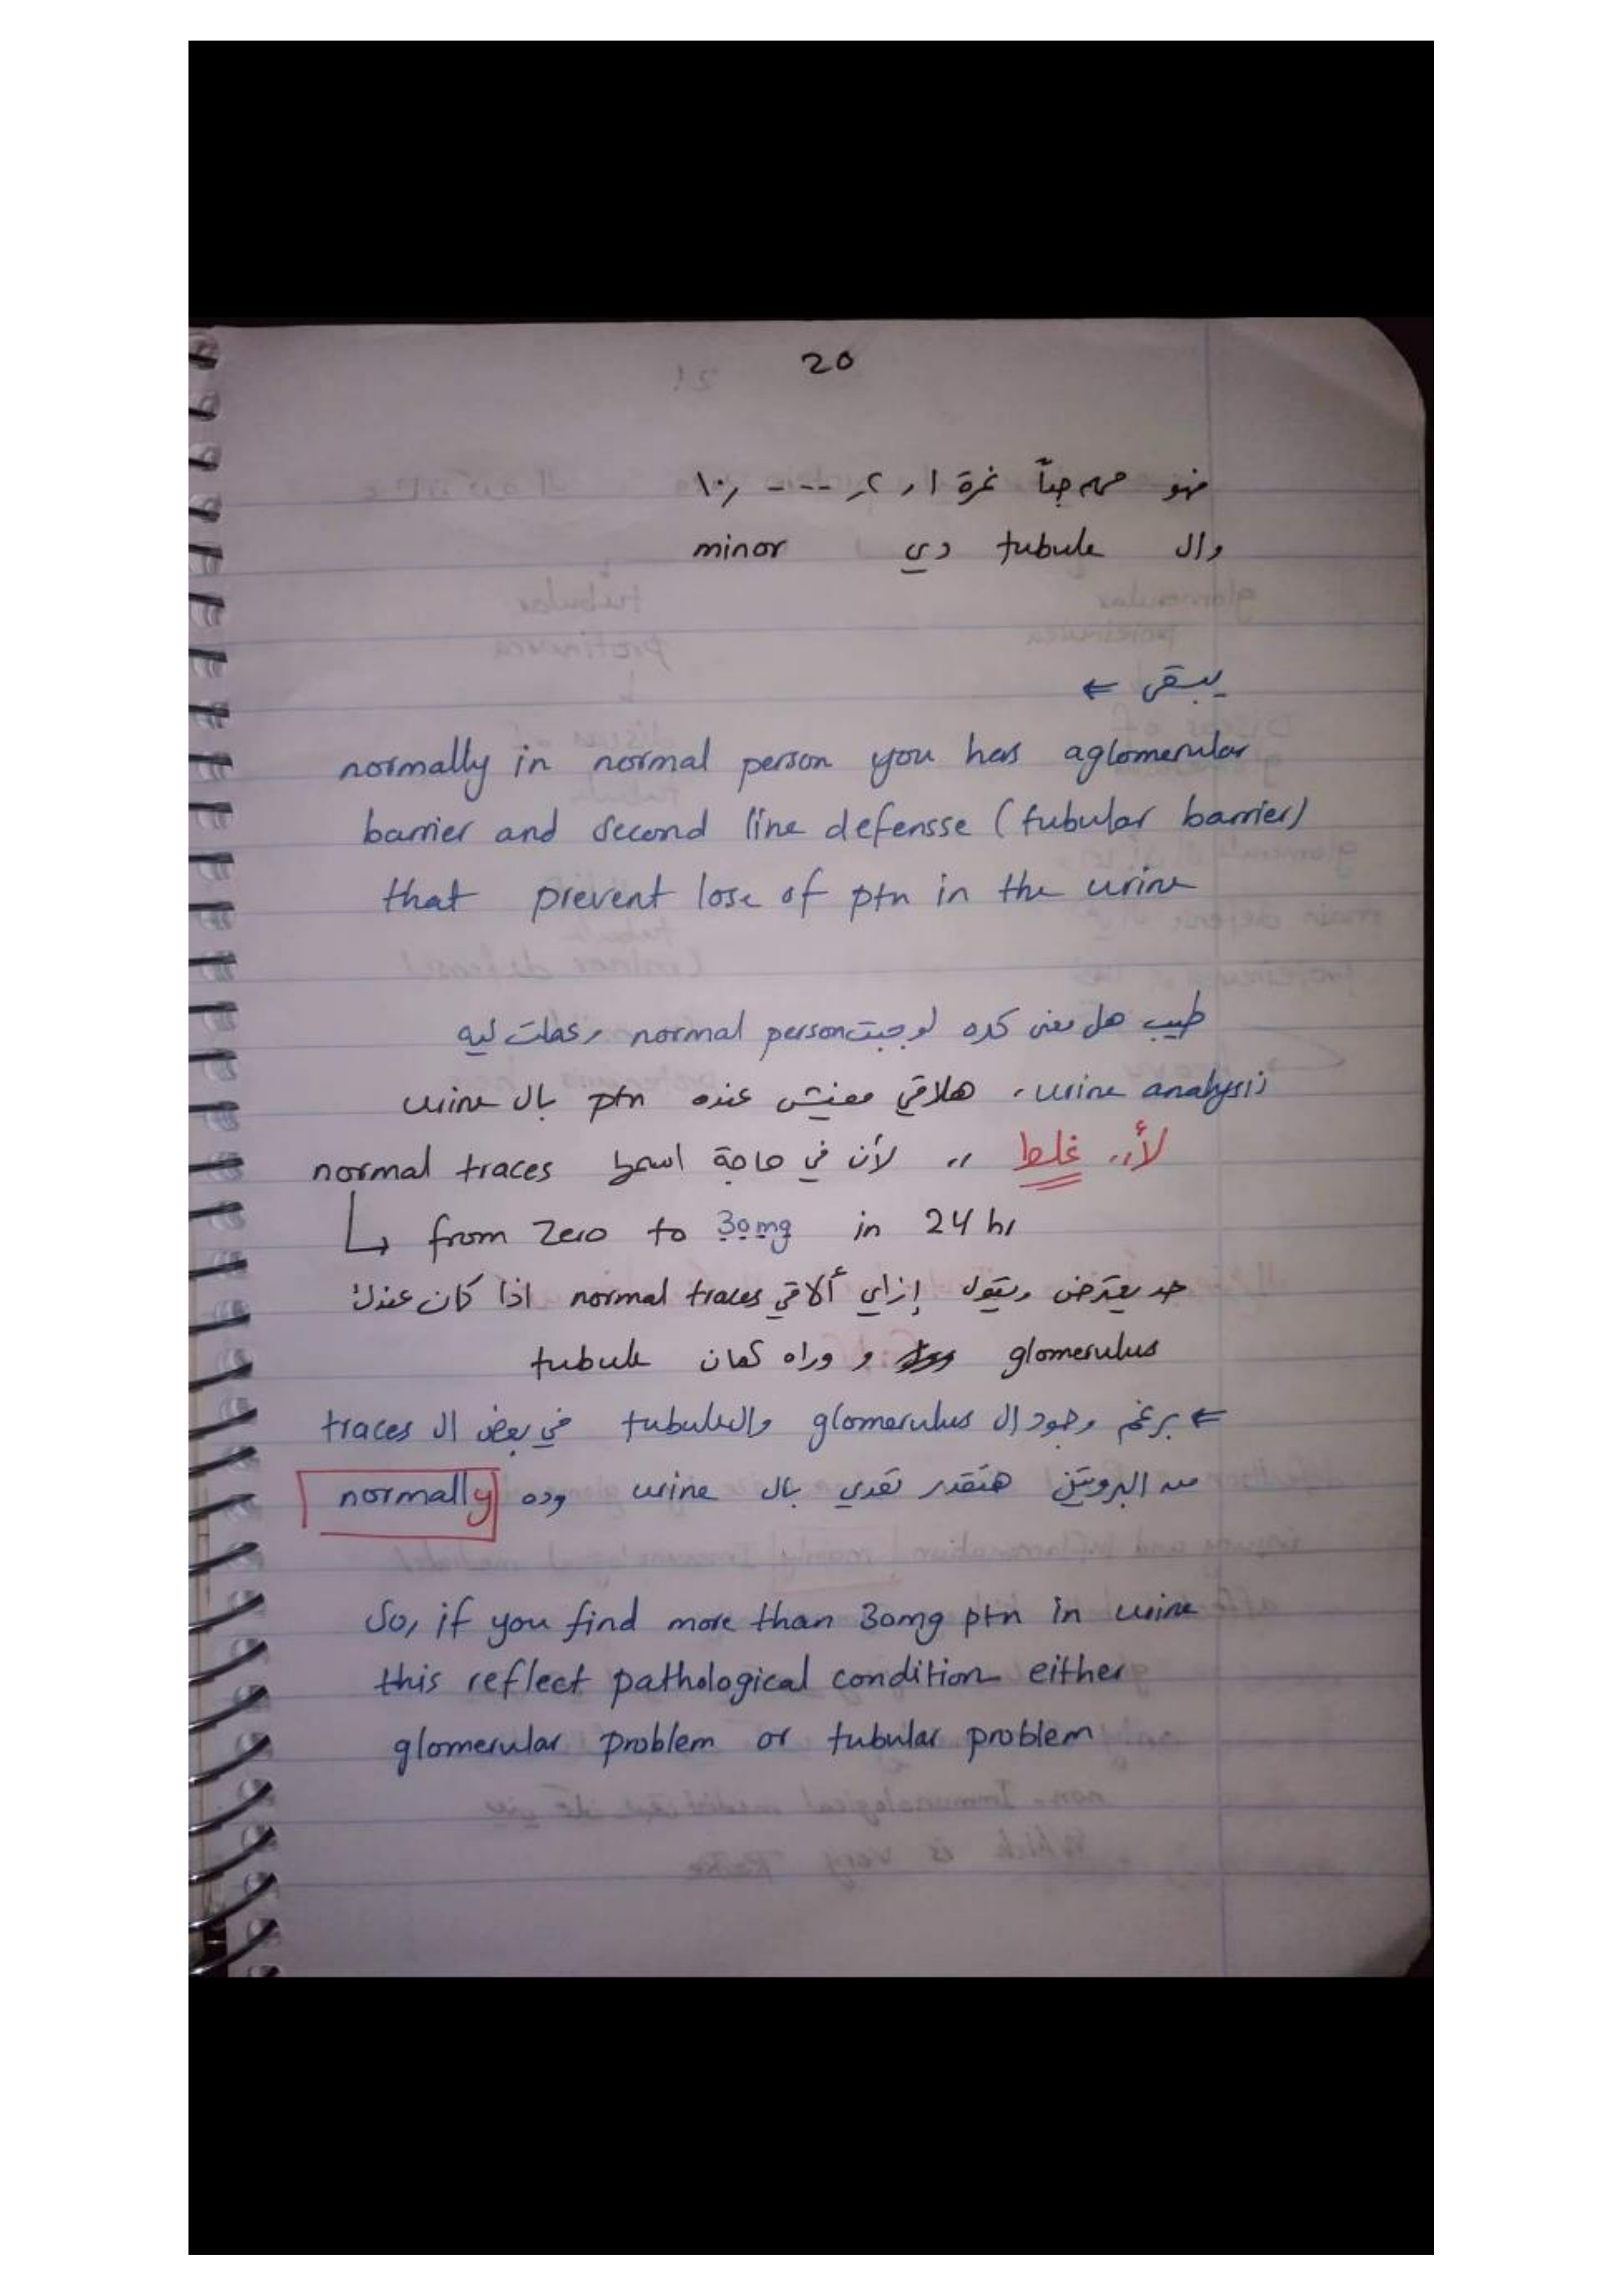 20
فهو مهم جداً نمرة ١ , ٢, --- ,١٠
وال tubule دي minor
يبقى ⇐
normally in normal person you has aglomerular
barrier and second line defensse (tubular barrier)
that prevent lose of ptn in the urine
طيب هل معنى كده لو جبت normal person وعملت ليه
urine analysis ، هلاقي مفيش عنده ptn بال urine
لأ,, غلط ,, لأن في حاجة اسمها normal traces
↳ from Zero to 30mg in 24 hr
حد يعترض ويقول إزاي ألاقي normal traces اذا كان عندك
glomerulus و وراه كمان tubule
⇐ برغم وجود ال glomerulus والtubule في بعض ال traces
من البروتين هتقدر تعدي بال urine وده normally
So, if you find more than 30mg ptn in urine
this reflect pathological condition either
glomerular problem or tubular problem